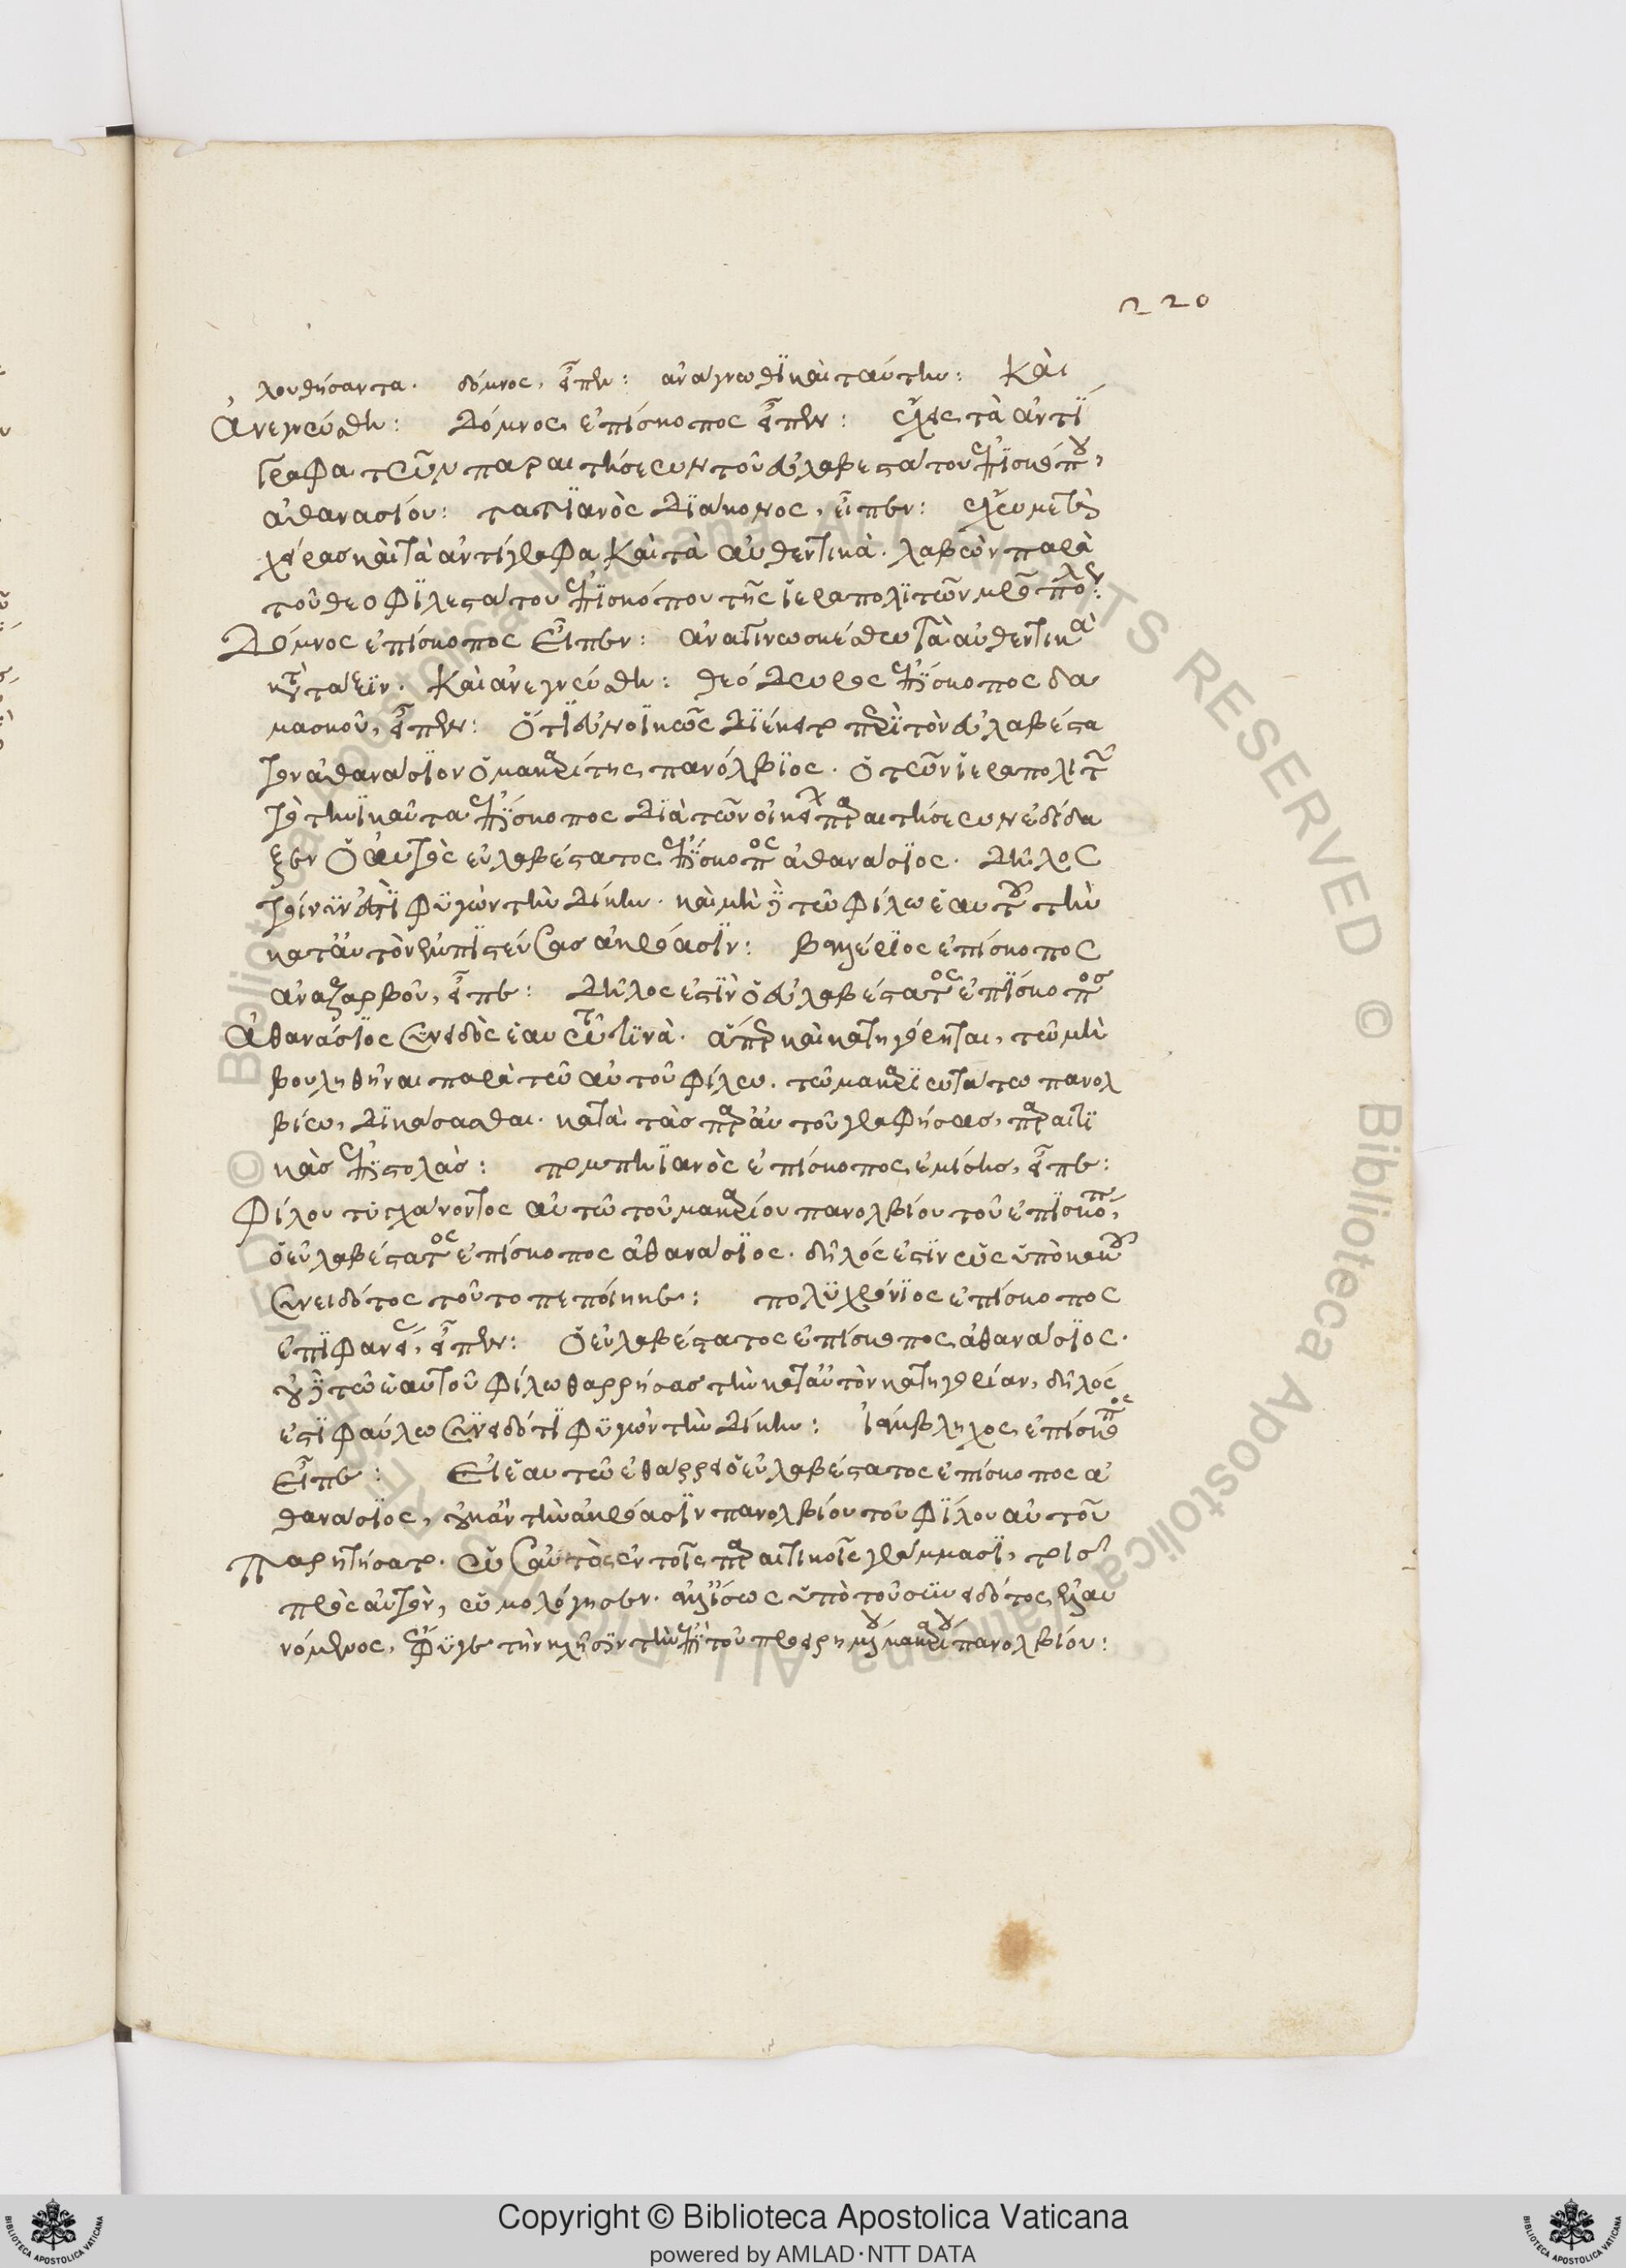 220
λουθήσαντα. δόμνος, εἶπεν: ἀναγνωσθῆι καὶ ταύτην: Καὶ
Ἀνεγνώσθη: Δόμνος ἐπίσκοπος εἶπεν: ἔχεις τὰ ἀντί
γραφα τῶν παραιτήσεων τοῦ εὐλαβεστάτου ἐπισκόπου,
ἀθανασίου: τατϊανὸς Διάκονος, εἶπεν: ἔχω μετὰ
χεῖρας καὶ τὰ ἀντίγραφα καὶ τὰ αὐθεντικά. λαβὼν παρὰ
τοῦ θεοφιλεστάτου ἐπισκόπου τῆς ἱεραπολιτῶν μητροπόλεως:
Δόμνος ἐπίσκοπος εἶπεν: ἀναγινωσκέσθω τὰ αὐθεντικὰ
κατὰ τάξιν. Καὶ ἀνεγνώσθη: θεόδωρος ἐπίσκοπος δα
μασκοῦ, εἶπεν: Ὅτι εὐνοϊκῶς Διέκειτο περὶ τὸν εὐλαβέστα
τον ἀθανάσιον ὁ μακαρίτης πανόλβιος. ὁ τῶν ἱεραπολιτῶν
τὸ τηνικαῦτα ἐπίσκοπος Διὰ τῶν οἰκείων παραιτήσεων ἐδίδα
ξεν Ὁ αὐτὸς εὐλαβέστατος ἐπίσκοπος ἀθανάσιος. Δῆλος
τοίνυν ἐστὶ φυγὼν τὴν Δίκην. καὶ μὴ ἐπὶ τῶ φίλω ἑαυτοῦ τὴν
κατ' αὐτὸν πιστεύσας ἀκρόασιν: Βαλέριος ἐπίσκοπος
ἀναζαρβοῦ, εἶπε: Δῆλος ἐστὶν ὁ εὐλαβέστατος ἐπίσκοπος
Ἀθανάσιος συνειδὼς ἑαυτῶ τινὰ. ἅπερ καὶ κατηγόρηται, τῶ μὴ
βουληθῆναι παρὰ τῶ αὐτοῦ φίλω. τῶ μακαριωτάτω πανολ
βίω, Δικάσασθαι. κατὰ τὰς παρ' αὐτοῦ γραφείσας, παραιτη
κὰς ἐπιστολάς: πομπηϊανὸς ἐπίσκοπος ἐμίσης, εἶπε:
Φίλου τυγχάνοντος αὐτῶ τοῦ μακαρίου πανολβίου τοῦ ἐπισκόπου,
ὁ εὐλαβέστατος ἐπίσκοπος ἀθανάσιος. δῆλός ἐστιν ὡς ὑπὸ κακοῦ
συνειδότος τοῦτο πεποίηκε: πολυχρόνιος ἐπίσκοπος
ἐπιφανείας, εἶπεν: Ὁ εὐλαβέστατος ἐπίσκοπος ἀθανάσιος.
οὐκ ἐπὶ τῶ ἑαυτοῦ φίλω θαρρήσας τὴν κατ' αὐτὸν κατηγορίαν, δῆλός
ἐστι φαύλω συνειδότι φυγὼν τὴν Δίκην: Ἰάμβληχος ἐπίσκοπος
εἶπε: Εἰ ἑαυτῶ ἐθάρρει ὁ εὐλαβέστατος ἐπίσκοπος ἀ
θανάσιος, οὐκ ἂν τὴν ἀκρόασιν πανολβίου τοῦ φίλου αὐτοῦ
παρητήσατο. ὃ ἐν τοῖς παραιτικοῖς γράμμασι, τοῖς
πρὸς αὐτὸν, ὡμολόγησεν. ἀλλ' ἴσως ὑπὸ τοῦ συνειδότος ἐλαυ
νόμενος, ἔφυγε τὴν κλῆσιν τὴν ἐπὶ τοῦ προειρημένου μακαρίου πανολβίου:
Copyright © Biblioteca Apostolica Vaticana
powered by AMLAD·NTT DATA